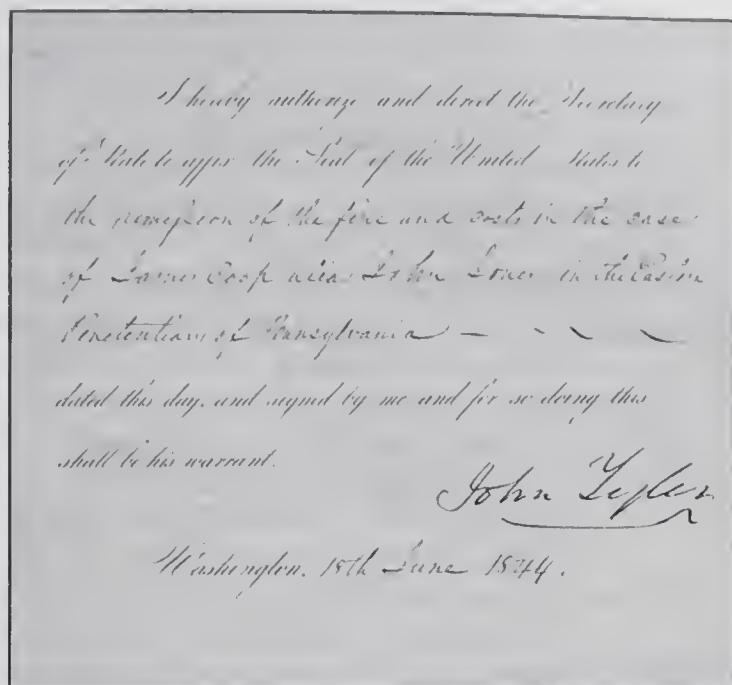 I hereby authorize and direct the Secretary
of State to affix the Seal of the United States to
the remission of the fine and costs in the case
of James Coop alias John Jones in the Eastern
Penetentiary of Pennsylvania
dated this day, and signed by me and for so doing this
shall be his warrant.
John Tyler
Washington, 18th June 1844.